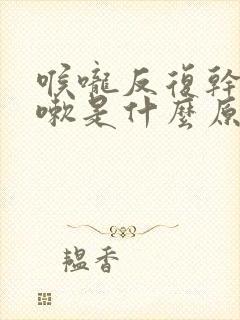 喉嚨反復幹
嗽是什麼原
韞香